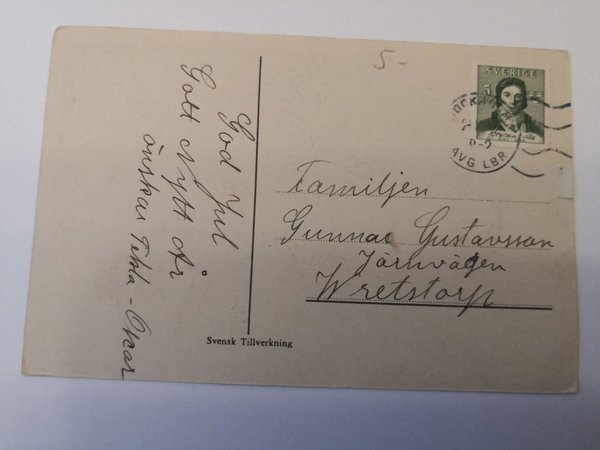 5-
SVERIGE
5
STOCKHOLM
AVG LBR
God Jul
Gott Nytt År
önskar Tekla - Oscar
Familjen
Gunnar Gustavsson
Järnvägen
Wretstorp
Svensk Tillverkning